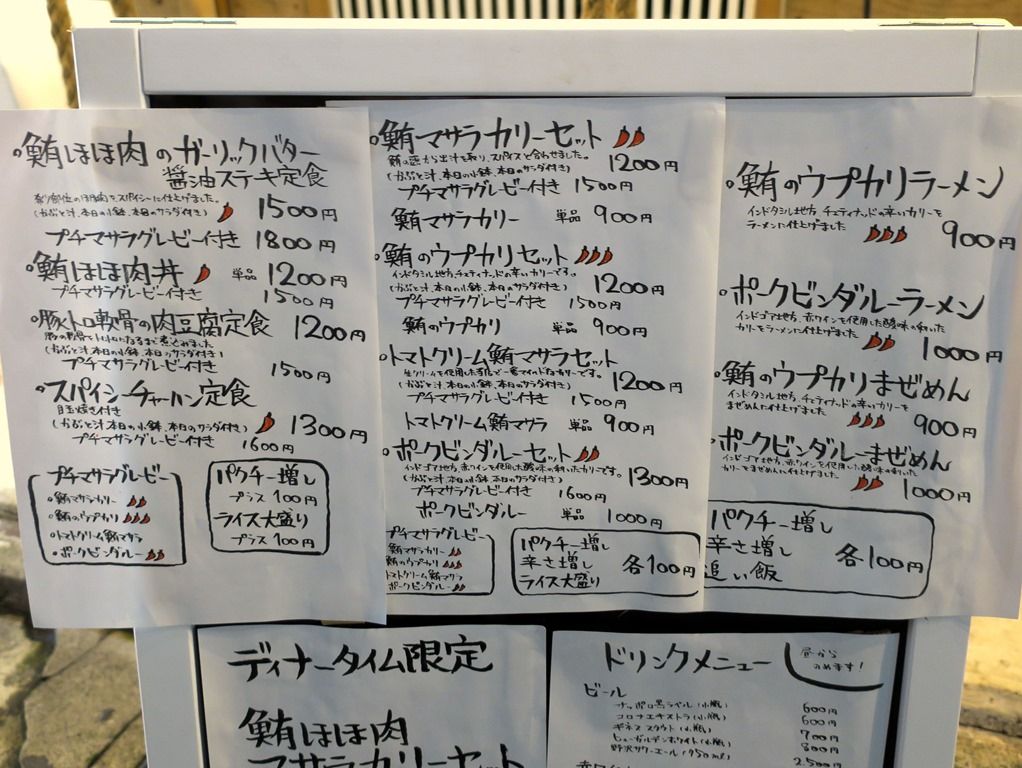 鮪ほほ肉のガーリックバター
醤油ステーキ定食
(かぶと汁、本日の小鉢、本日のサラダ付き)
1500円
プチマサラグレービー付き 1800円
鮪ほほ肉丼 単品 1200円
プチマサラグレービー付き 1500円
豚トロ軟骨の肉豆腐定食 1200円
(かぶと汁、本日の小鉢、本日のサラダ付き)
プチマサラグレービー付き 1500円
スパイシーチャーハン定食
目玉焼き付き
(かぶと汁、本日の小鉢、本日のサラダ付き) 1300円
プチマサラグレービー付き 1600円
プチマサラグレービー
鮪マサラカリー
鮪のウプカリ
トマトクリーム鮪マサラ
ポークビンダルー
パクチー増し
プラス100円
ライス大盛り
プラス100円
鮪マサラカリーセット
鮪の頭から出汁を取り、スパイスと合わせました。
(かぶと汁、本日の小鉢、本日のサラダ付き) 1200円
プチマサラグレービー付き 1500円
鮪マサラカリー 単品 900円
鮪のウプカリセット
インドタミル地方、チェティナードの辛いカリーです。
(かぶと汁、本日の小鉢、本日のサラダ付き) 1200円
プチマサラグレービー付き 1500円
鮪のウプカリ 単品 900円
トマトクリーム鮪マサラセット
生クリームを使用した当店で一番マイルドなカリーです。
(かぶと汁、本日の小鉢、本日のサラダ付き) 1200円
プチマサラグレービー付き 1500円
トマトクリーム鮪マサラ 単品 900円
ポークビンダルーセット
インドゴア地方、赤ワインを使用した酸味の利いたカリーです。
(かぶと汁、本日の小鉢、本日のサラダ付き) 1300円
プチマサラグレービー付き 1600円
ポークビンダルー 単品 1000円
プチマサラグレービー
鮪マサラカリー
鮪のウプカリ
トマトクリーム鮪マサラ
ポークビンダルー
パクチー増し
辛さ増し
ライス大盛り
各100円
鮪のウプカリラーメン
インドタミル地方、チェティナードの辛いカリーを
ラーメンに仕上げました
900円
ポークビンダルーラーメン
インドゴア地方、赤ワインを使用した酸味の利いた
カリーをラーメンに仕上げました
1000円
鮪のウプカリまぜめん
インドタミル地方、チェティナードの辛いカリーを
まぜめんに仕上げました
900円
ポークビンダルーまぜめん
インドゴア地方、赤ワインを使用した酸味の利いた
カリーをまぜめんに仕上げました
1000円
パクチー増し
辛さ増し
追い飯
各100円
ディナータイム限定
鮪ほほ肉
マサラカリーセット
ドリンクメニュー
昼から
のめます!
ビール
サッポロ黒ラベル(小瓶) 600円
コロナエキストラ(小瓶) 600円
ギネススタウト(小瓶) 700円
ヒューガルデンホワイト(小瓶) 800円
野沢サワーエール(750ml) 2.500円